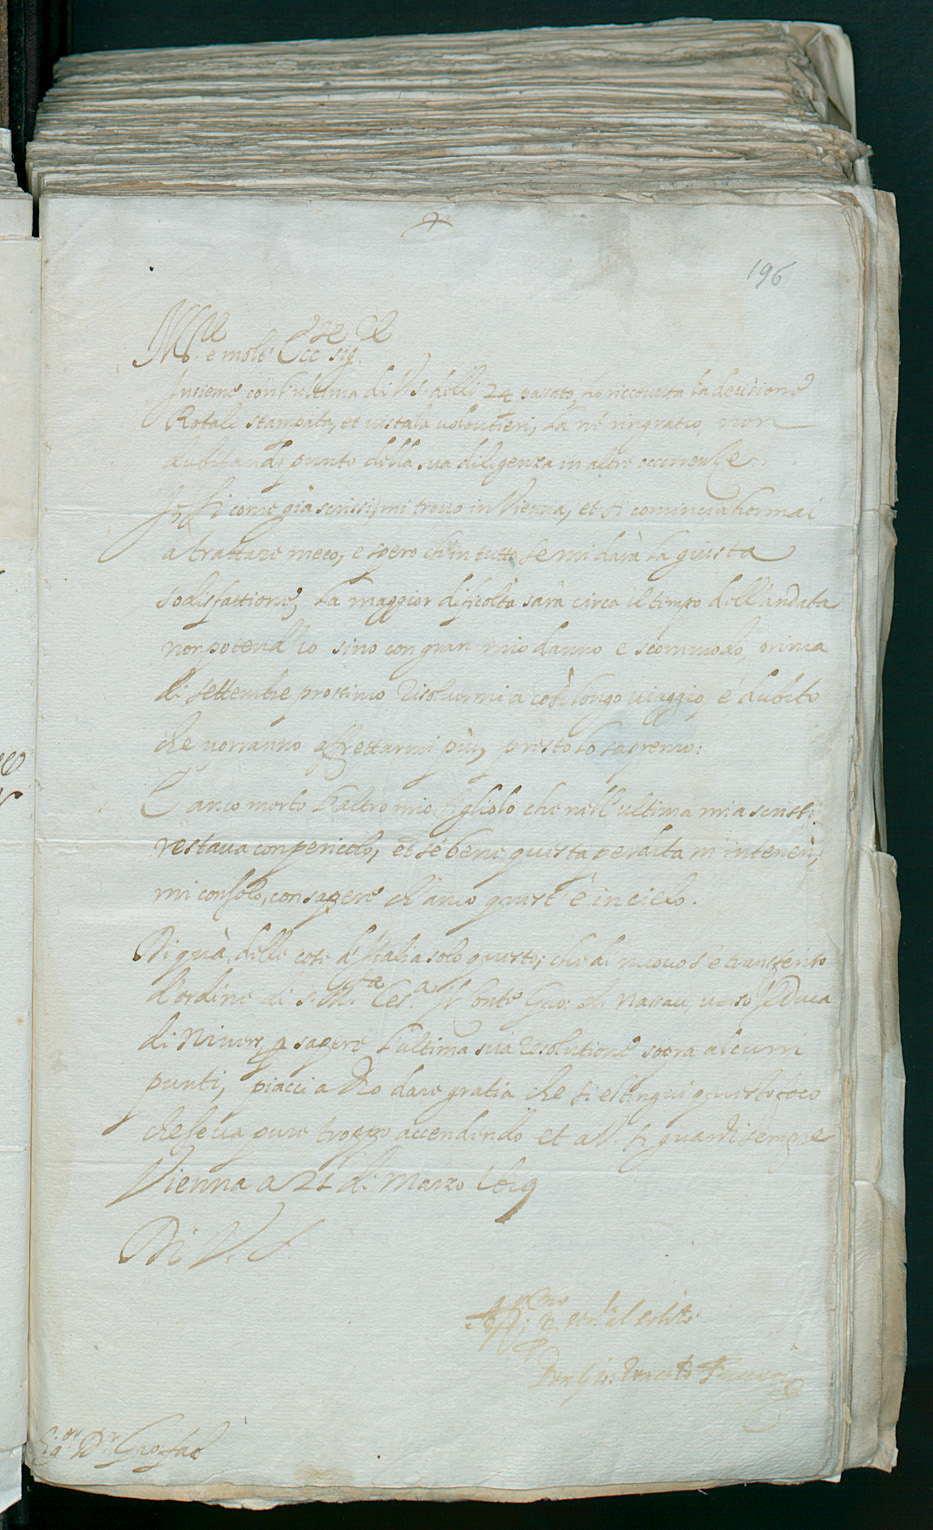 196
Ill.re e molt' Ecc.te Sig.re
Insieme con l'ultima di V.S. delli 24 passato, ho riceuuta la decisione
Rotale stampata, et uistala volontieri, la ne ringratio, non
dubitando punto della sua diligenza in altre occorrenze.
Io, si come già scrissi, mi trouo in Vienna, et si comincia hormai
a trattare meco, e spero ch'in tutto se mi darà la giusta
sodisfattione, la maggior dificoltà sarà circa il tempo dell'andata
non potend'io sino con gran mio danno e scommodo, prima
di settembre prossimo risoluermi a così longo uiaggio, e dubito
che uorranno affrettarmi più, presto lo sapremo:
È anco morto l'altro mio figliolo che nell'ultima mia scrissi
restaua con pericolo, et se bene questa perdita
mi consolo, con sapere ch'anco quest'è in cielo.
Di quà, delle cose d'Italia solo questo, che di nuouo s'è transferito
d'ordine di S. M.tà Ces.a il Conte Gio: di Nassau, uerso il Duca
di Niuers p sapere l'ultima sua resolutione sopra alcuni
punti, piacci a Dio dare gratia che si estingui questo foco
che se ua pure troppo accendendo et a V.S. guardi sempre
Vienna a 21 di Marzo 1629
Di V. S.
Aff.mo il solito
S.or D.r